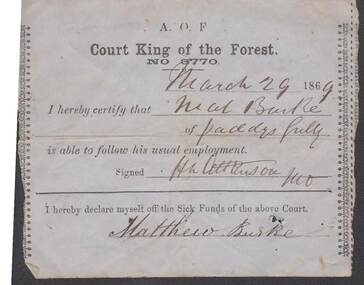 A. O. F
Court King of the Forest.
NO 3770.
March 29 1869
I hereby certify that Mat Burke
of paddys gully
is able to follow his usual employment.
Signed H L Atkinson
MD
I hereby declare myself off the Sick Funds of the above Court.
Matthew Burke